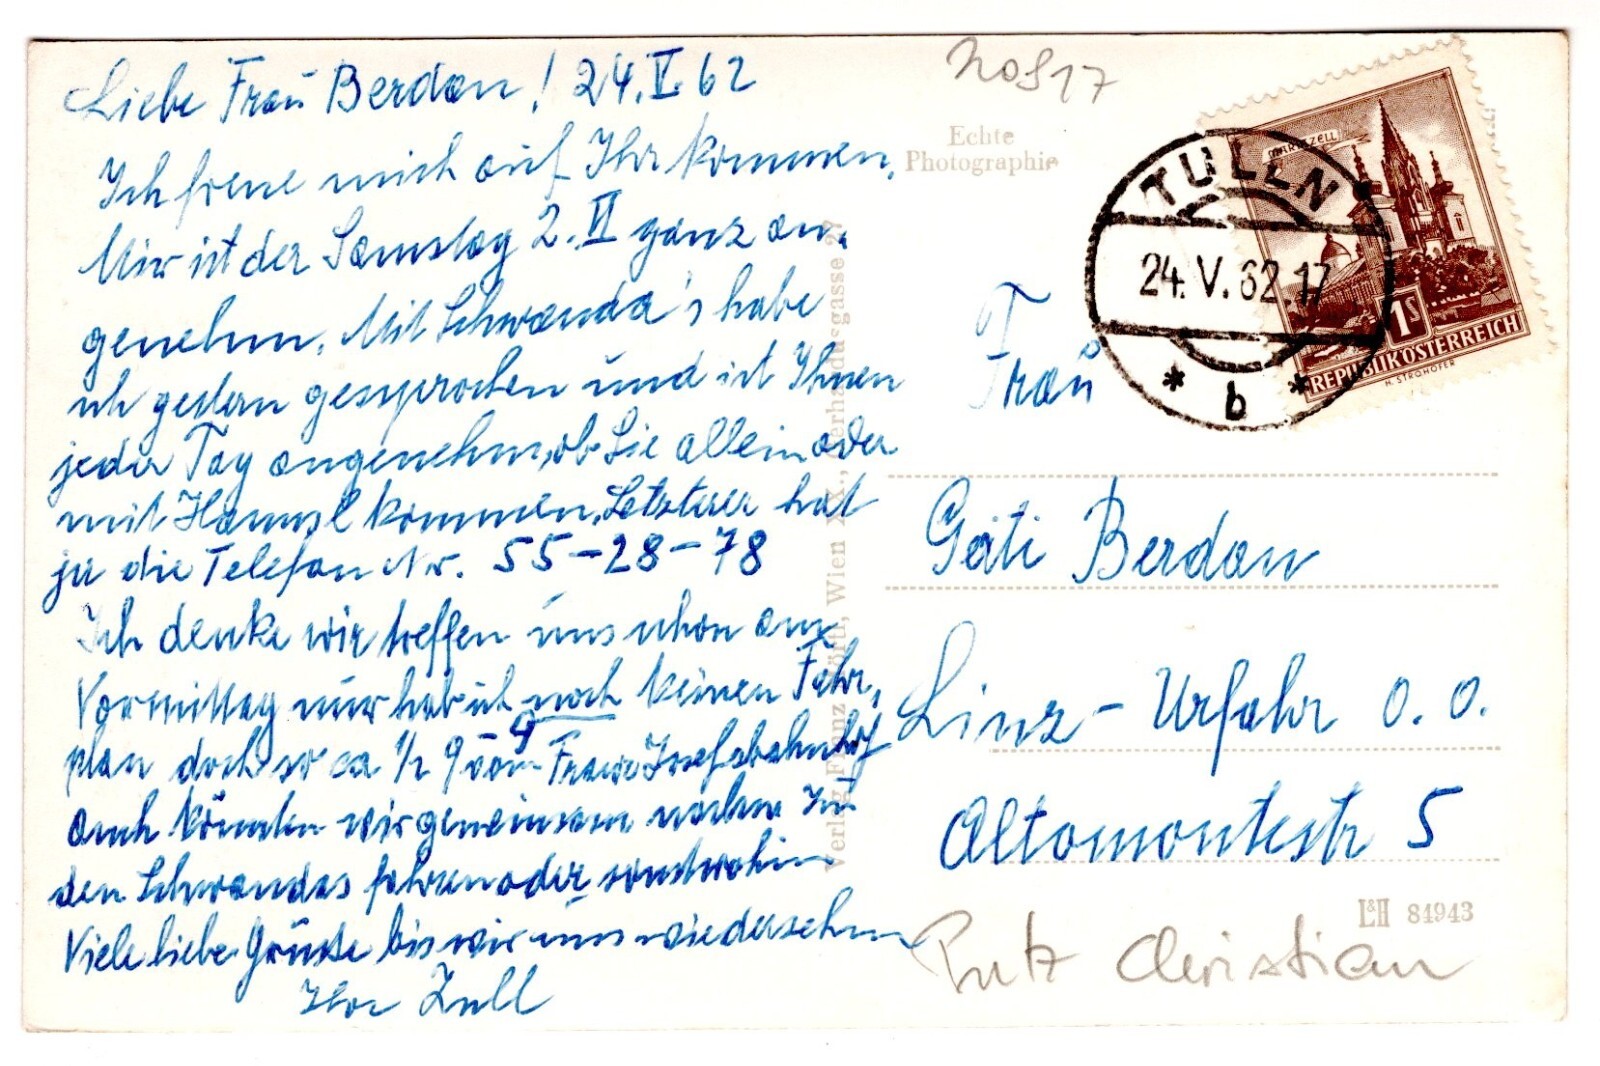 Liebe Frau Berdan! 24.V.62
Ich freue mich auf Ihr kommen.
Mir ist der Samstag 2.VI ganz an-
genehm. Mit Schwanda's habe
ich gestern gesprochen und ist Ihnen
jeder Tag angenehm, ob Sie allein oder
mit Hannsl kommen. Letzterer hat
ja die Telefon Nr. 55-28-78
Ich denke wir treffen uns schon am
Vormittag nur hab ich noch keinen Fahr-
plan doch so ca 1/2 9 Franz Josefsbahnhof
auch könnten wir gemeinsam nachm zu
den Schwandas fahren oder sonstwohin
Viele liebe Grüsse bis wir uns wiedersehn
Ihr Zull
NOS17
Echte
Photographie
Verlag Franz Mörtl, Wien XX., Gerhardusgasse 2
TULLN
24.V.62.17
* b *
MARIAZELL
1S
REPUBLIK ÖSTERREICH
H. STROHOFER
Frau
Gäti Berdan
Linz-Urfahr O.O.
Altomontestr 5
L&H 84943
Putz Christian